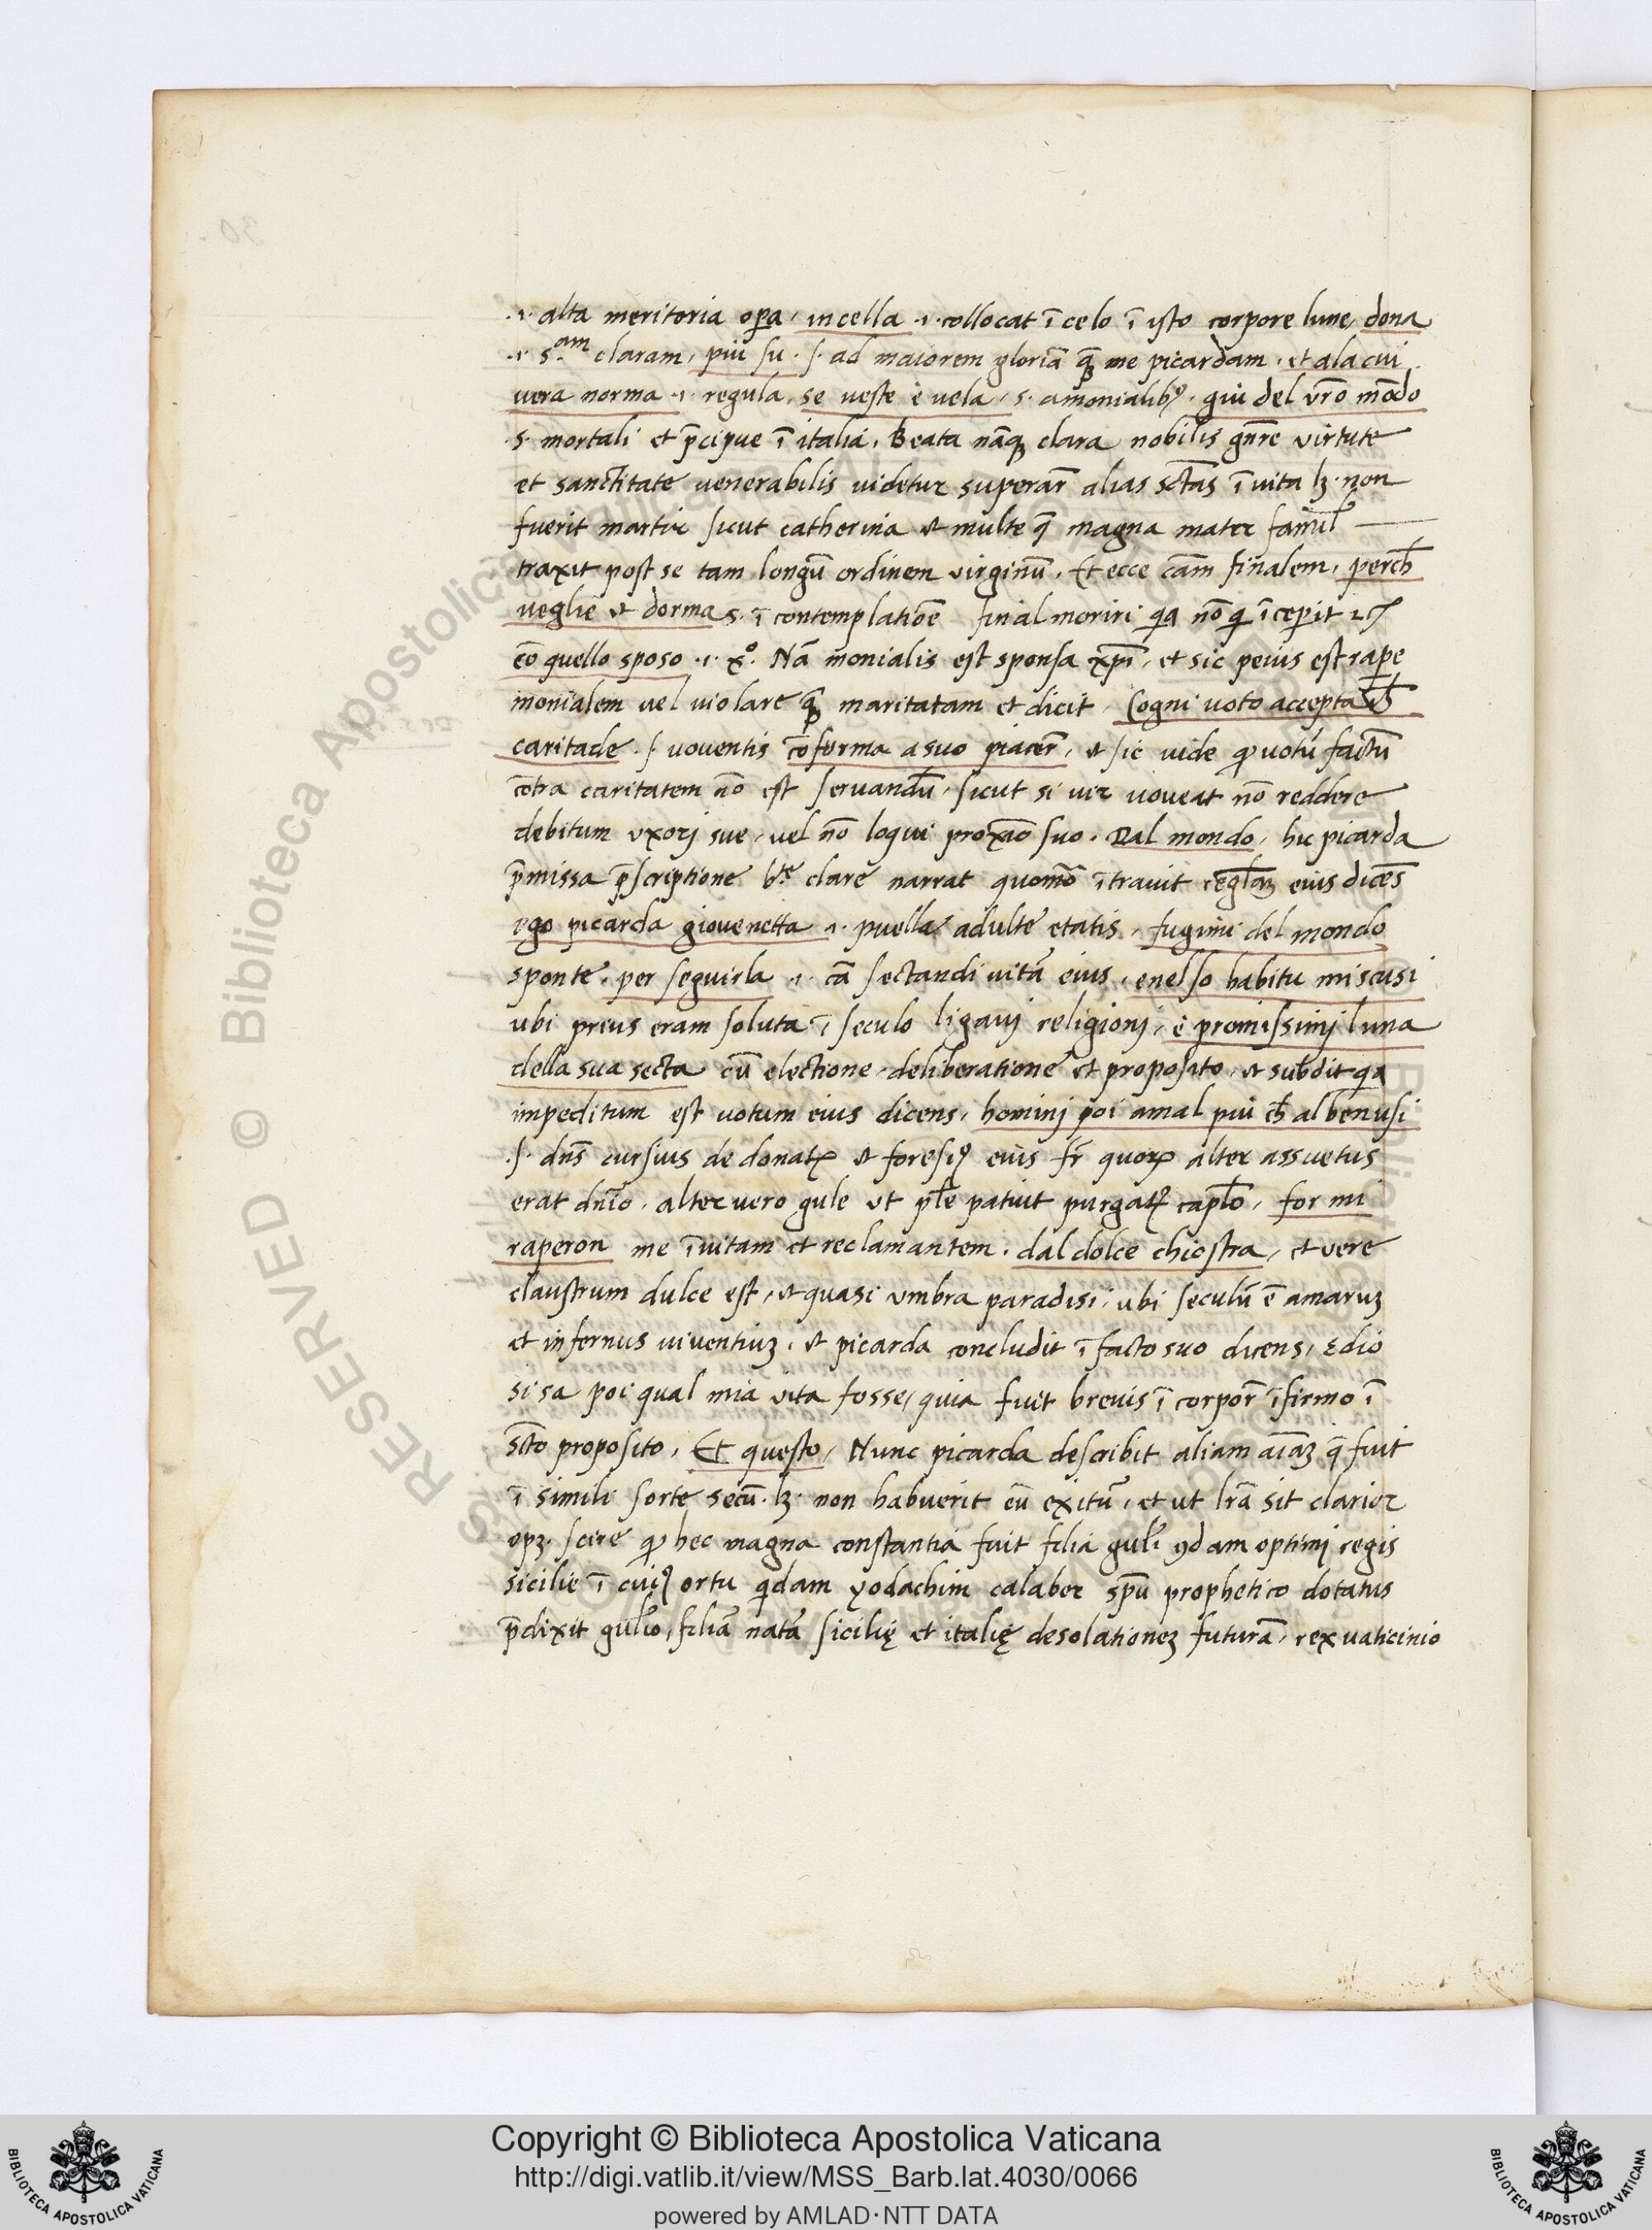 .i. alta meritoria oꝑa, incella .i. collocat ī celo ī isto corpore lune, dona
.i. s.am claram, piu su. s. ad maiorem gloriā q̄ꝫ me picardam, et ala cui
vera norma .i. regula, se veste è vela, s. a monialibꝰ. giu del vr̄o mōdo
.s. mortali et p̄cipue ī italia. Beata nāqꝫ clara nobilis gn̄re virtute
et sanctitate venerabilis videtur superar̄ alias sctās ī vita lꝫ. non
fuerit martir sicut catherina et multe q̄ magna mater famīl
traxit post se tam longū ordinem virginū. Et ecce cām finalem, perch̄
veglie et dorma s. ī contemplatiōe final moriri qa nō q īceꝑit
cō quello sposo .i. xo. Nā monialis est sponsa xp̄i, et sic peius est raꝑe
monialem vel violare q̄ꝫ maritatam et dicit, Cogni voto accepta ch̄
caritade. s. voventis cōforma a suo piacer̄, et sic vide ꝙ votū factū
cōtra caritatem nō est servandū, sicut si vir voveat nō reddere
debitum vxorj sue, vel nō loqui proxīo suo. Dal mondo, hic picarda
p̄missa p̄scriptione bte clare narrat quomō ītravit regl̄aꝫ eius dicēs
ego picarda giovenetta .i. puella adulte etatis, fugimi del mondo
sponte, per seguirla .i. cā sectandi vitā eius, enel so habitu miscusi
ubi prius eram soluta ī seculo ligavj religionj, è promissimj luna
della sua secta cū electione, deliberatione et proposito, et subdit qa
impeditum est votum eius dicens, hominj poi a mal piu ch̄ al ben usi
.s. dn̄s cursius de donatꝭ et foresiꝰ eius fr̄ quoꝝ alter assuetus
erat dnīo, alter vero gule ut pl̄e patuit purgatꝭ capl̄o, for mi
raperon me īvitam et reclamantem, dal dolce chiostra, et vere
claustrum dulce est, et quasi vmbra paradisi, ubi seculū ē amaruꝫ
et infernus viventiuꝫ, et picarda concludit ī facto suo dicens, Edio
si sa poi qual mia vita fosse, quia fuit brevis ī corpor̄ īfirmo ī
scto proposito. Et questo, Nunc picarda describit aliam aīaꝫ q̄ fuit
ī simili sorte secū. lꝫ. non habuerit eū exitū, et ut lrā sit clarior
opꝫ. scire ꝙ hec magna constantia fuit filia gul̄i ꝗdam optimj regis
sicilie ī cuiꝰ ortu ꝗdam yodachim calaber spū prophetico dotatus
p̄dixit gul̄io, filiā natā sicilię et italię desolationeꝫ futurā, rex vaticinio
Copyright © Biblioteca Apostolica Vaticana
http://digi.vatlib.it/view/MSS_Barb.lat.4030/0066
powered by AMLAD·NTT DATA